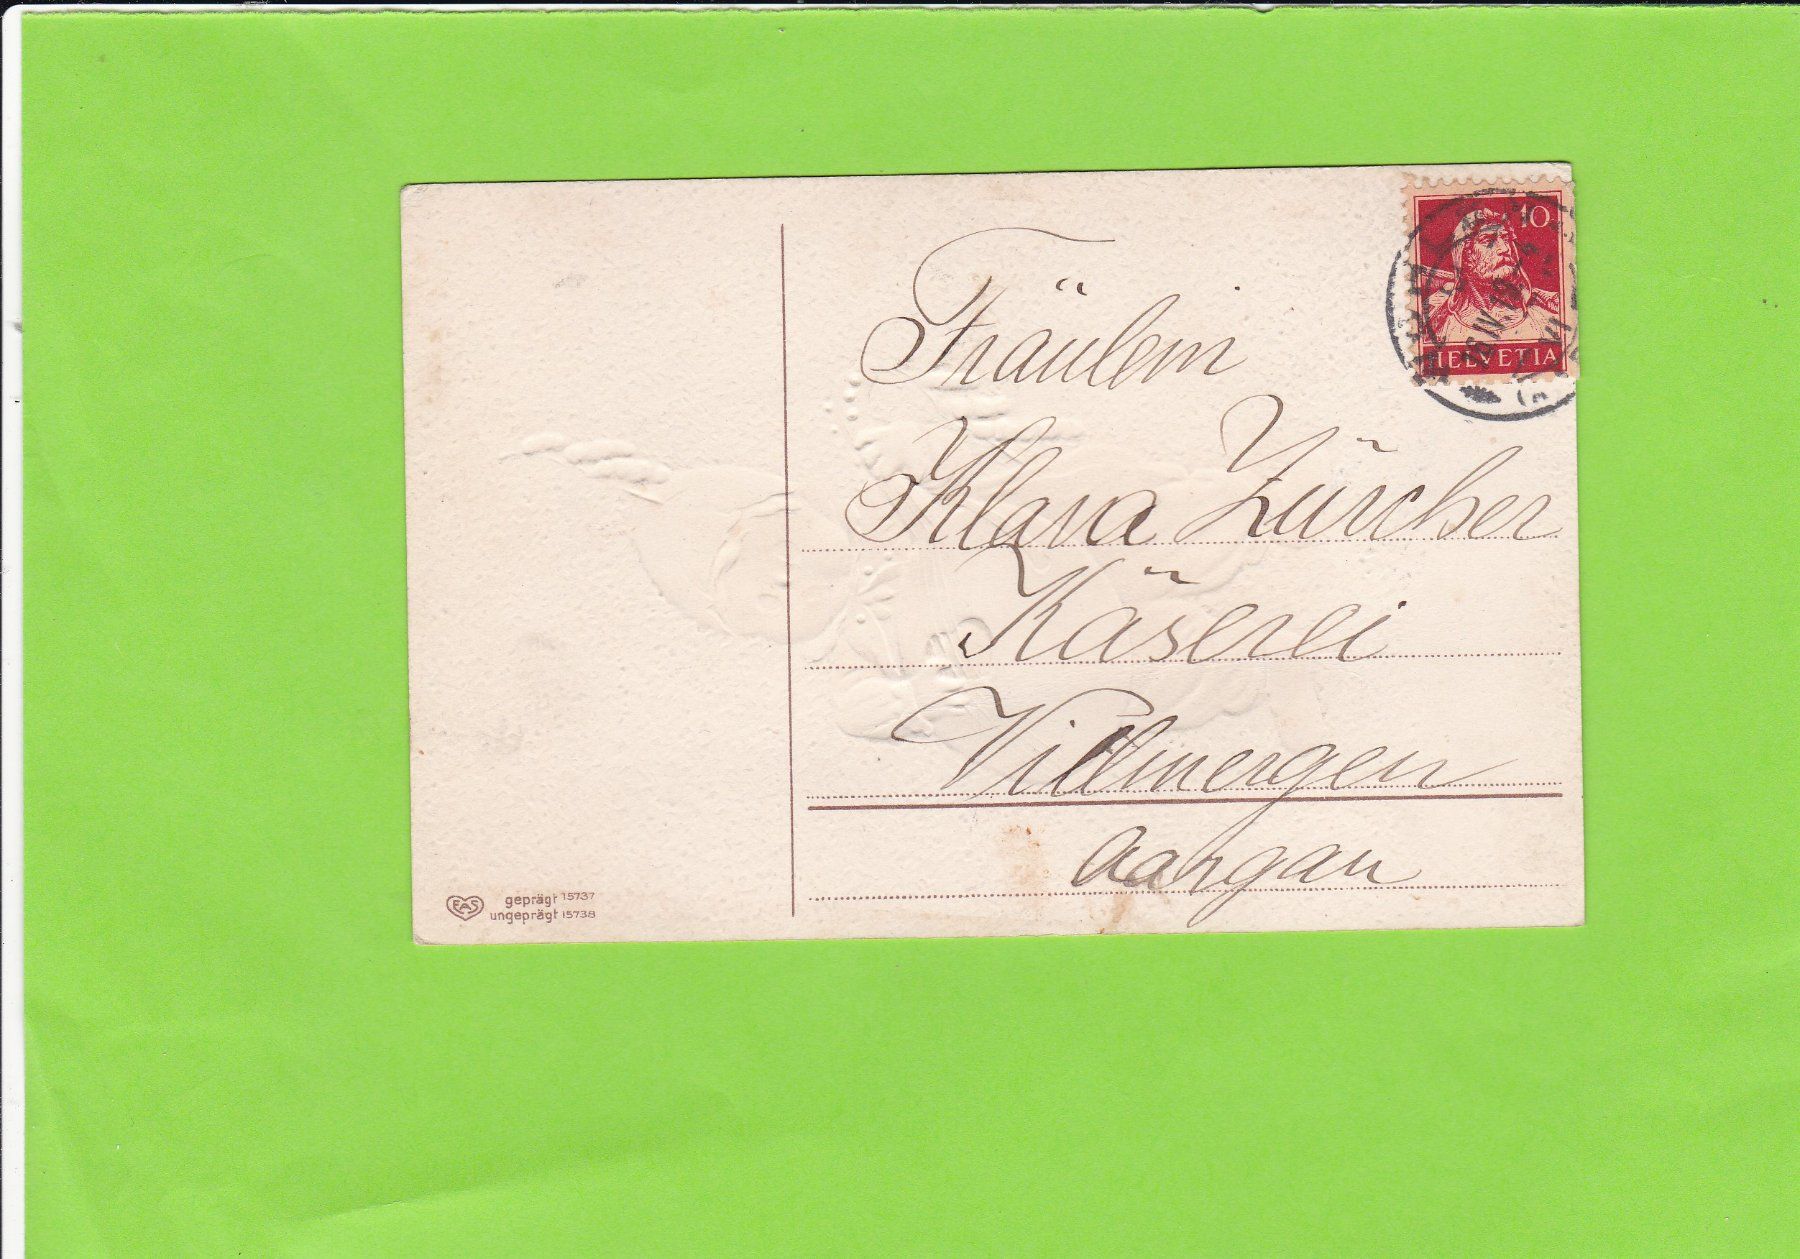 10
HELVETIA
Fräulein
Klara Zürcher
Käserei
Villmergen
Aargau
EAS
geprägt 15737
ungeprägt 15738